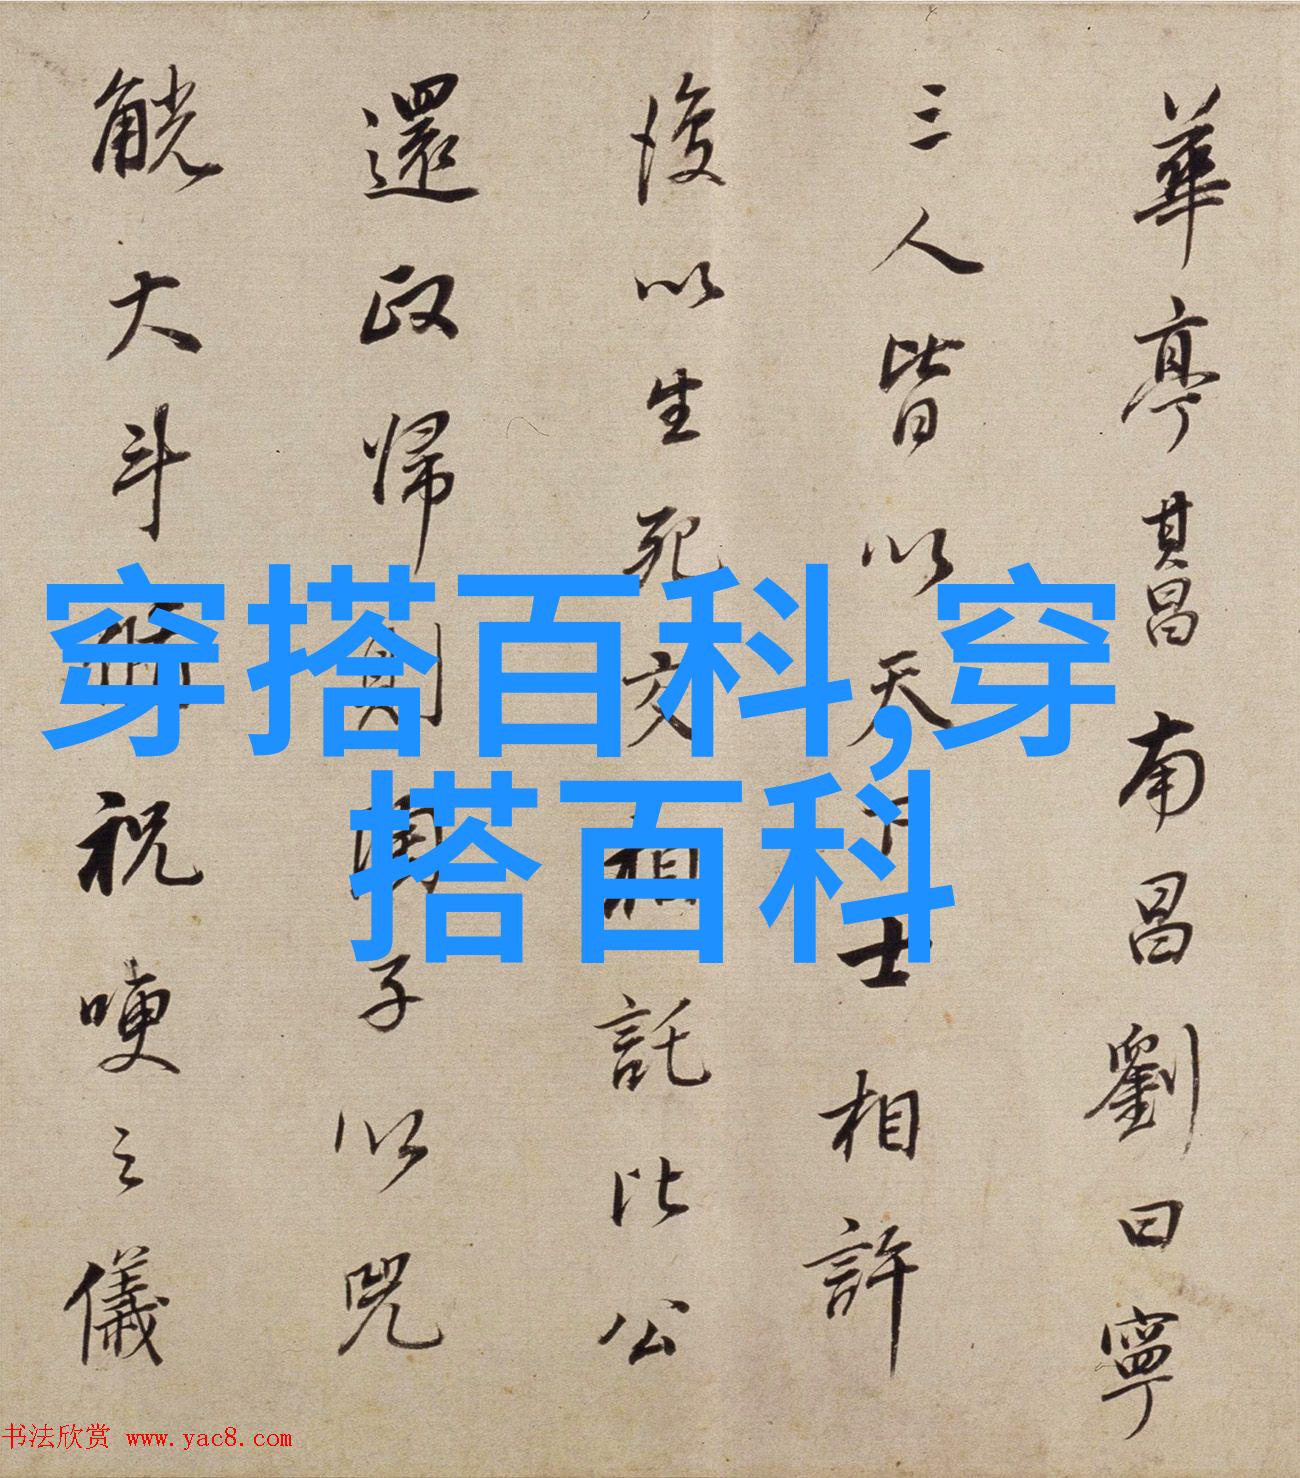 華亭其昌南昌劉曰寧
三人皆以天下士相許
後以生死交相託比公
還政歸則陶子以兕
觥大斗祝哽之儀
穿搭百科,穿
搭百科
书法欣赏 www.yac8.com